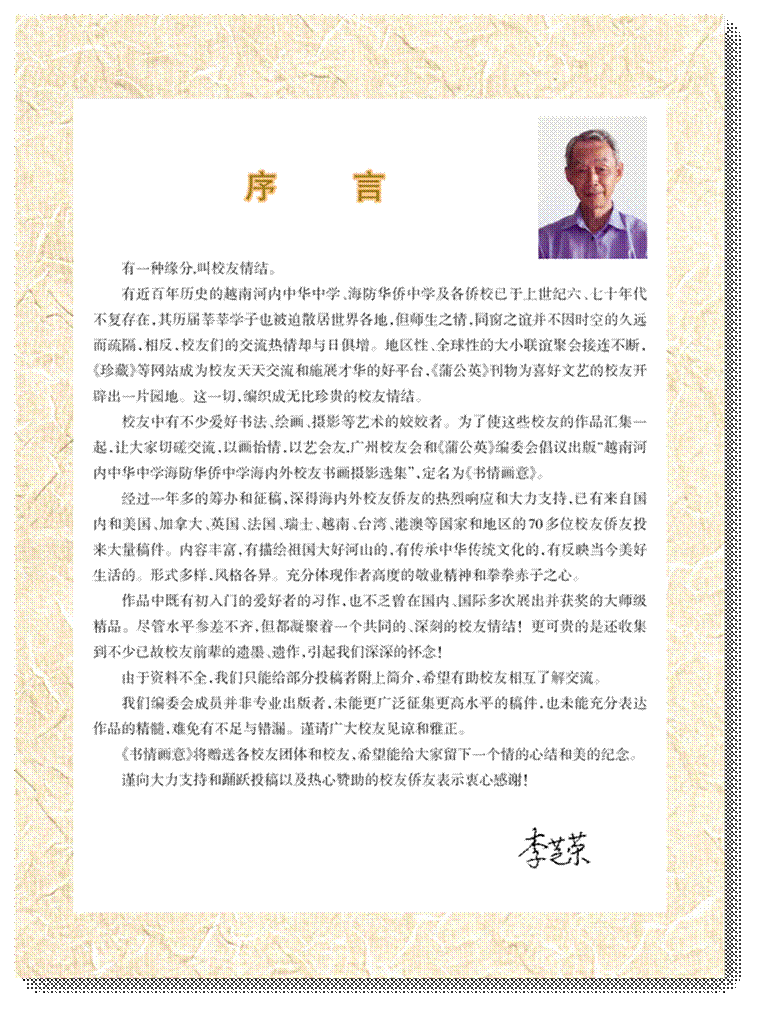 序 言
有一种缘分,叫校友情结。
有近百年历史的越南河内中华中学、海防华侨中学及各侨校已于上世纪六、七十年代
不复存在,其历届莘莘学子也被迫散居世界各地,但师生之情,同窗之谊并不因时空的久远
而疏隔,相反,校友们的交流热情却与日俱增。地区性、全球性的大小联谊聚会接连不断,
《珍藏》等网站成为校友天天交流和施展才华的好平台,《蒲公英》刊物为喜好文艺的校友开
辟出一片园地。这一切,编织成无比珍贵的校友情结。
校友中有不少爱好书法、绘画、摄影等艺术的姣姣者。为了使这些校友的作品汇集一
起,让大家切磋交流,以画怡情,以艺会友,广州校友会和《蒲公英》编委会倡议出版“越南河
内中华中学海防华侨中学海内外校友书画摄影选集”,定名为《书情画意》。
经过一年多的筹办和征稿,深得海内外校友侨友的热烈响应和大力支持,已有来自国
内和美国、加拿大、英国、法国、瑞士、越南、台湾、港澳等国家和地区的70多位校友侨友投
来大量稿件。内容丰富,有描绘祖国大好河山的,有传承中华传统文化的,有反映当今美好
生活的。形式多样,风格各异。充分体现作者高度的敬业精神和拳拳赤子之心。
作品中既有初入门的爱好者的习作,也不乏曾在国内、国际多次展出并获奖的大师级
精品。尽管水平参差不齐,但都凝聚着一个共同的、深刻的校友情结！更可贵的是还收集
到不少已故校友前辈的遗墨、遗作,引起我们深深的怀念！
由于资料不全,我们只能给部分投稿者附上简介,希望有助校友相互了解交流。
我们编委会成员并非专业出版者,未能更广泛征集更高水平的稿件,也未能充分表达
作品的精髓,难免有不足与错漏。谨请广大校友见谅和雅正。
《书情画意》将赠送各校友团体和校友,希望能给大家留下一个情的心结和美的纪念。
谨向大力支持和踊跃投稿以及热心赞助的校友侨友表示衷心感谢！
李芝荣